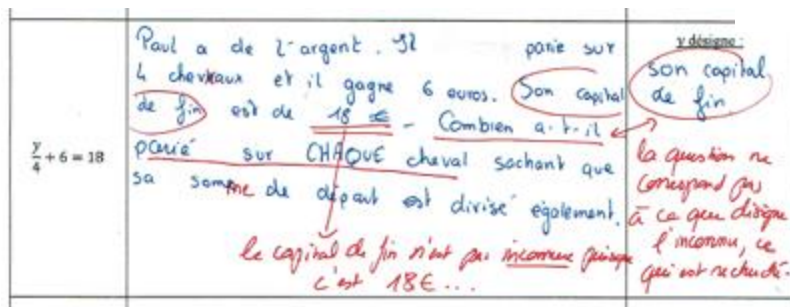 y/4 + 6 = 18
Paul a de l'argent. Il parie sur
4 chevaux et il gagne 6 euros. Son capital
de fin est de 18 € - Combien a-t-il
parié sur CHAQUE cheval sachant que
sa somme de départ est divisé également.
le capital de fin n'est pas inconnu puisque
c'est 18€...
y désigne :
son capital
de fin
la question ne
correspond pas
à ce que désigne
l'inconnu, ce
qui est recherché.